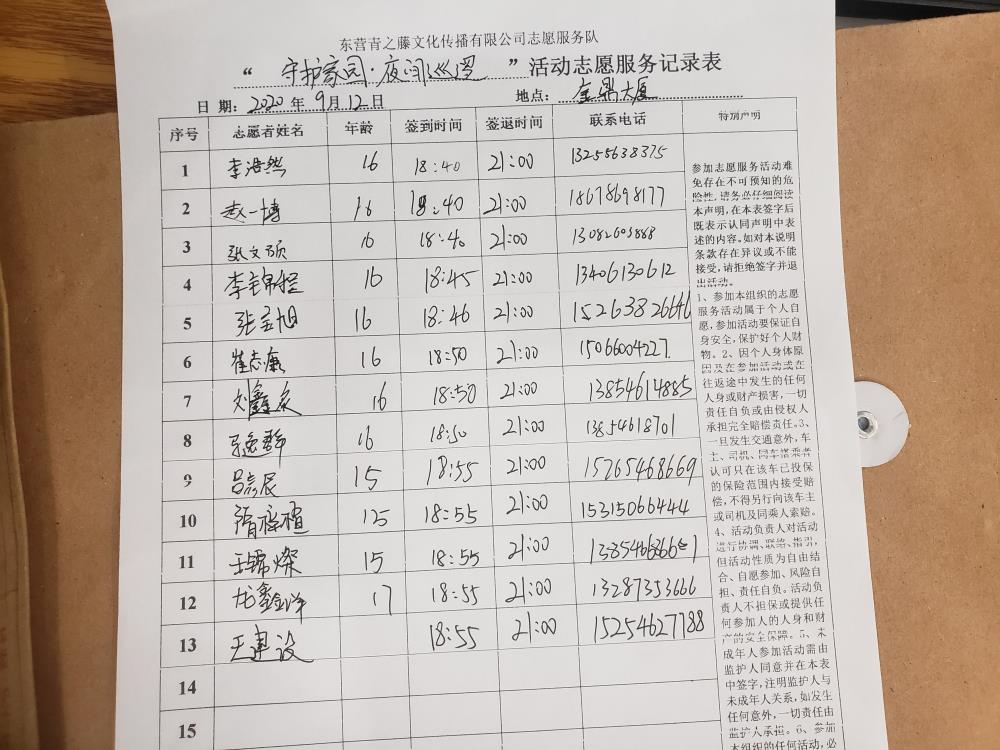 东营青之藤文化传播有限公司志愿服务队
“ 守护家园·夜间巡逻 ”活动志愿服务记录表
日 期: 2020 年 9 月 12 日 地点: 金鼎大厦
序号 志愿者姓名 年龄 签到时间 签退时间 联系电话 特别声明
1 李浩然 16 18:40 21:00 13255638375
2 赵一博 16 18:40 21:00 18678698177
3 张文硕 16 18:40 21:00
4 16 18:45 21:00 13406130612
5 张宝旭 16 18:46 21:00 15263826646
6 崔志康 16 18:50 21:00 15066004227
7 刘鑫 16 18:50 21:00 13854614885
8 16 18:50 21:00 13854618701
9 吕 辰 15 18:55 21:00 15265468669
10 隋 15 18:55 21:00 15315066444
11 王锦燦 15 18:55 21:00
12 尤鑫洋 17 18:55 21:00 13287353666
13 王建设 18:55 21:00 15254627788
14
15
参加志愿服务活动难
免存在不可预知的危
险性,请务必仔细阅读
本声明,在本表签字后
既表示认同声明中表
述的内容。如对本说明
条款存在异议或不能
接受,请拒绝签字并退
出活动。
1、参加本组织的志愿
服务活动属于个人自
愿,参加活动要保证自
身安全,保护好个人财
物。2、因个人身体原
因及在参加活动或在
往返途中发生的任何
人身或财产损害,一切
责任自负或由侵权人
承担完全赔偿责任。3、
一旦发生交通意外,车
主、司机、同车搭乘者
认可只在该车已投保
的保险范围内接受赔
偿,不得另行向该车主
或司机及同乘人索赔。
4、活动负责人对活动
进行协调、联络、指引,
但活动性质为自由结
合、自愿参加、风险自
担、责任自负。活动负
责人不担保或提供任
何参加人的人身和财
产的安全保障。5、未
成年人参加活动需由
监护人同意并在本表
中签字,注明监护人与
未成年人关系,如发生
任何意外,一切责任由
监护人承担。6、参加
本组织的任何活动,必